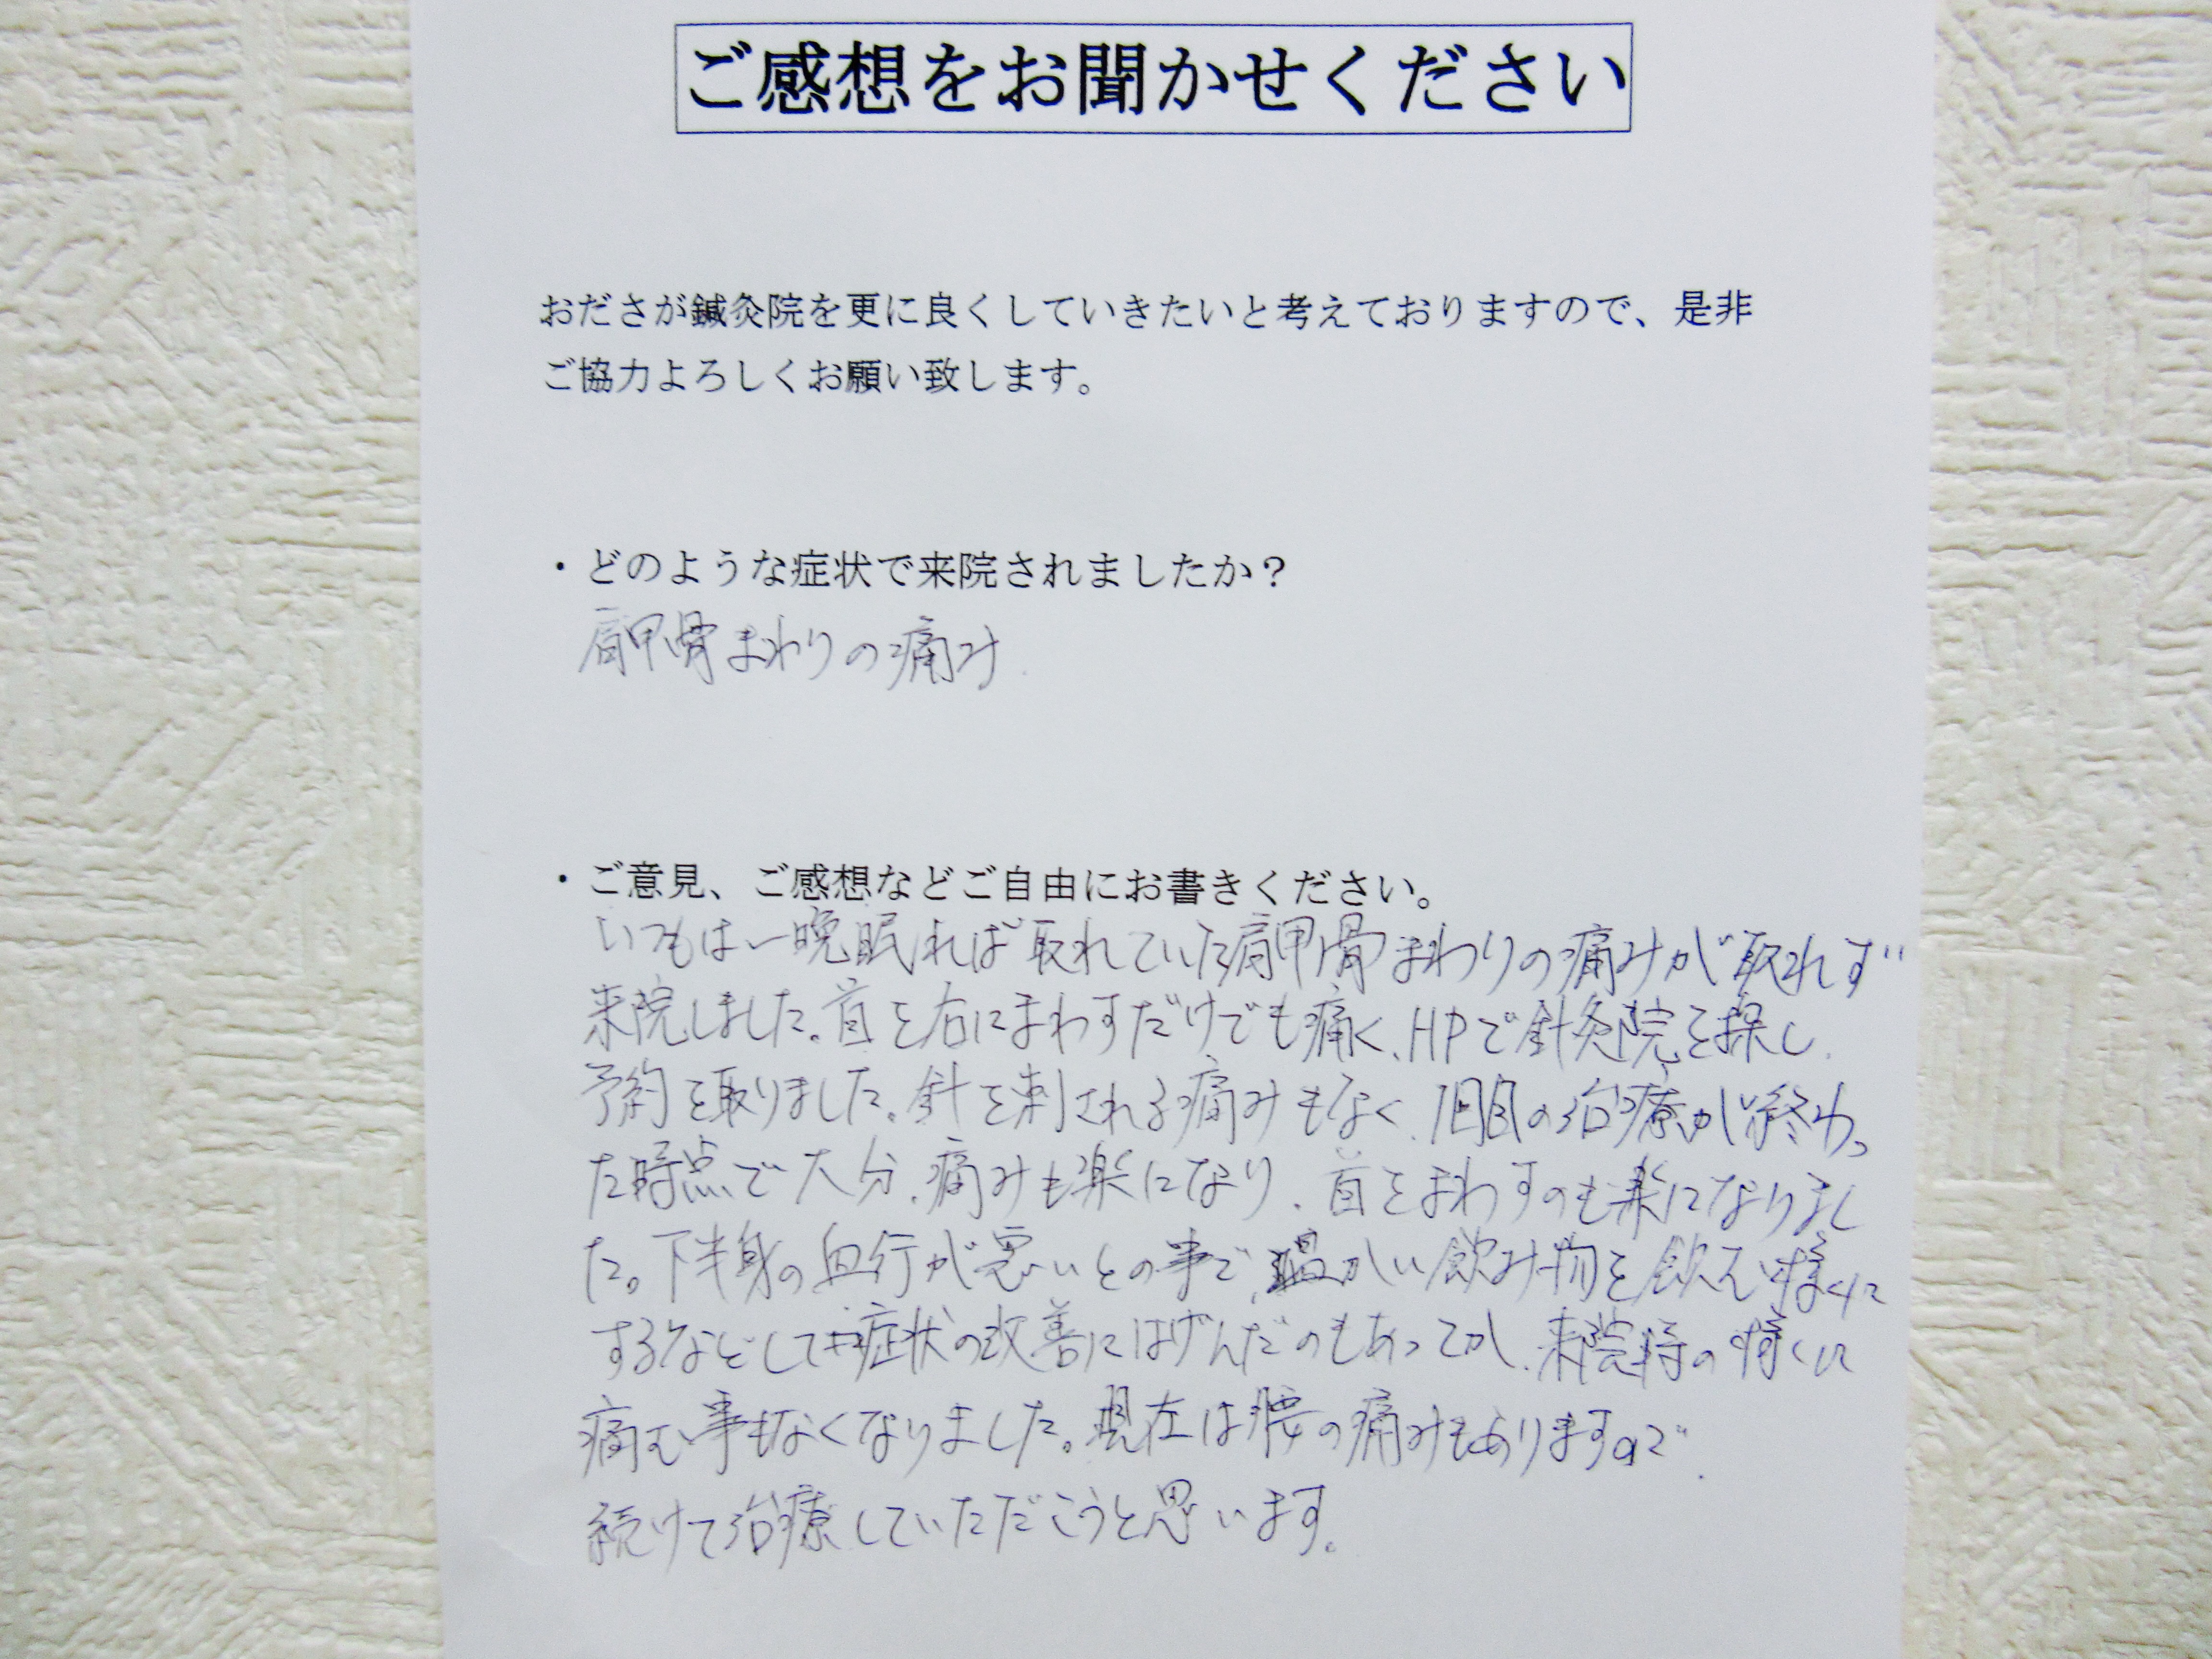 ご感想をお聞かせください
おださが鍼灸院を更に良くしていきたいと考えておりますので、是非
ご協力よろしくお願い致します。
・どのような症状で来院されましたか？
肩甲骨まわりの痛み
・ご意見、ご感想などご自由にお書きください。
いつもは一晩眠れば取れていた肩甲骨まわりの痛みが取れず
来院しました。首を右にまわすだけでも痛く、HPで針灸院を探し、
予約を取りました。針を刺される痛みもなく、1回目の治療が終わっ
た時点で大分、痛みも楽になり、首をまわすのも楽になりまし
た。下半身の血行が悪いとの事で、温かい飲み物を飲む様に
するなどして症状の改善にはげんだのもあってか、来院時の様に
痛む事もなくなりました。現在は腰の痛みもありますので、
続けて治療していただこうと思います。